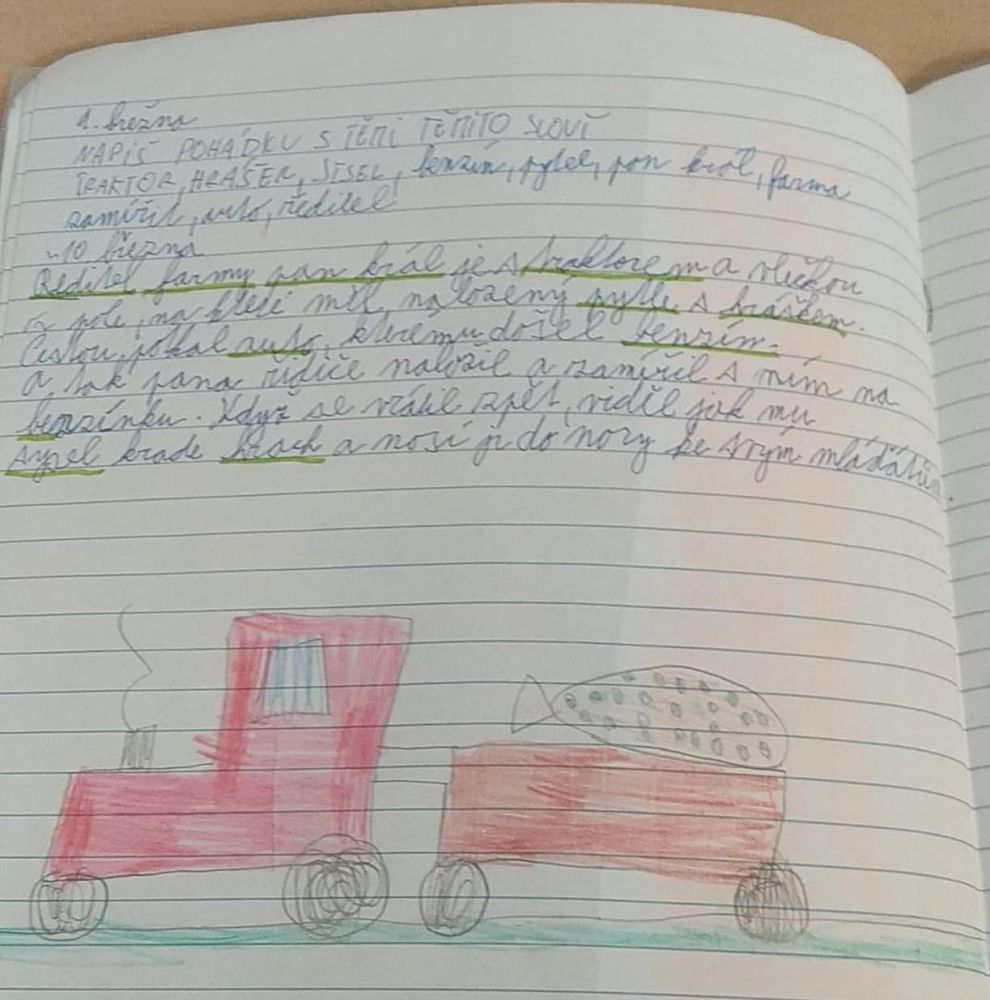 1. března
NAPIŠ POHÁDKU S TĚMI TĚMITO SLOVI
TRAKTOR, HRAŠEK, SISEL, benzín, pytel, pan král, farma
zamířil, auto, ředitel
10 března
Ředitel farmy pan král je s traktorem a vlečkou
z pole, na které měl naložený pytle s hráškem.
Cestou potkal auto, kteremu došel benzín.
a tak pana řidiče naložil a zamířil s ním na
benzínku. Když se vrátil zpět, viděl jak mu
sysel krade hrách a nosí ji do nory ke svým mláďatům.